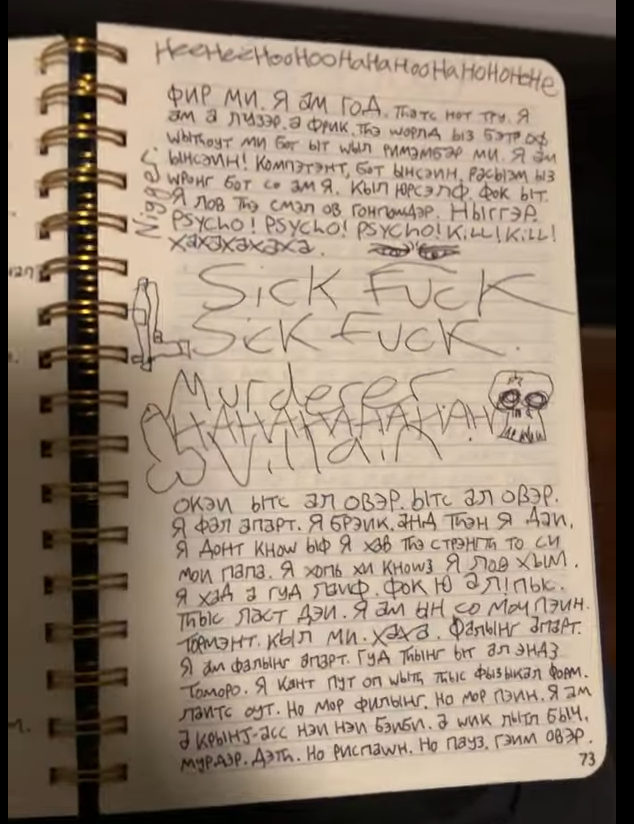 HeeHeeHooHooHaHaHooHaHoHoHeHe
ФИР МИ. Я ӘМ ГОД. Thaтс НОТ ТРУ. Я
ӘМ Ә ЛУЗЭР. Ә ФРИК. Thә ШОРЛД ЫЗ БЭТР ОФ
WЫThОУТ МИ БОТ ЫТ WЫЛ РИМЭМБӘР МИ. Я ӘМ
ЫНСЭИН! КОМПЭТЭНТ, БОТ ЫНСЭИН, РӘСЫЗМ ЫЗ
WРОНГ БОТ СО ӘМ Я. КЫЛ ЮРСЭЛФ. ФОК ЫТ.
Я ЛОВ Thә СМЭЛ ОВ ГОНПАWДЭР. НЫГГЭР.
PSYCHO! PSYCHO! PSYCHO! KiLL! KiLL!
ХӘХӘХӘХӘХӘ.
Nigger.
SiCK FuCK
SiCK FuCK.
Murderer
HAHAHAHAHAHAH
Villain
ОКЭИ ЫТС ӘЛ ОВЭР. ЫТС ӘЛ ОВЭР.
Я ФӘЛ ӘПАРТ. Я БРЭИК. ӘНД ThЭН Я ДӘИ.
Я ДОНТ KNOW ЫФ Я ХӘВ Thә СТРЭНГTh ТО СИ
МОИ ПАПА. Я ХОПЬ ХИ KNOWЗ Я ЛОВ ХЫМ.
Я ХӘД Ә ГУД ЛАИФ. ФОК Ю ӘЛ! ПЫК.
ThЫС ЛӘСТ ДЭИ. Я ӘМ ЫН СО МОЧ ПЭИН.
ТОРМЭНТ. КЫЛ МИ. ХӘХӘ. ФӘЛЫНГ ӘПАРТ.
Я ӘМ ФӘЛЫНГ ӘПАРТ. ГУД ThЫНГ ЫТ ӘЛ ЭНДЗ
ТОМОРО. Я КӘНТ ПУТ ОП WЫTh ThЫС ФЫЗЫКӘЛ ФОРМ.
ЛАИТС ОУТ. НО МОР ФИЛЫНГ. НО МОР ПЭИН. Я ӘМ
Ә КРЫНЖ-ӘСС НЭИ НЭИ БЭИБИ. Ә WИК ЛЫТЛ БЫЧ.
МУРДЭР. ДЭTh. НО РИСПАWН. НО ПАУЗ. ГЭИМ ОВЭР.
73